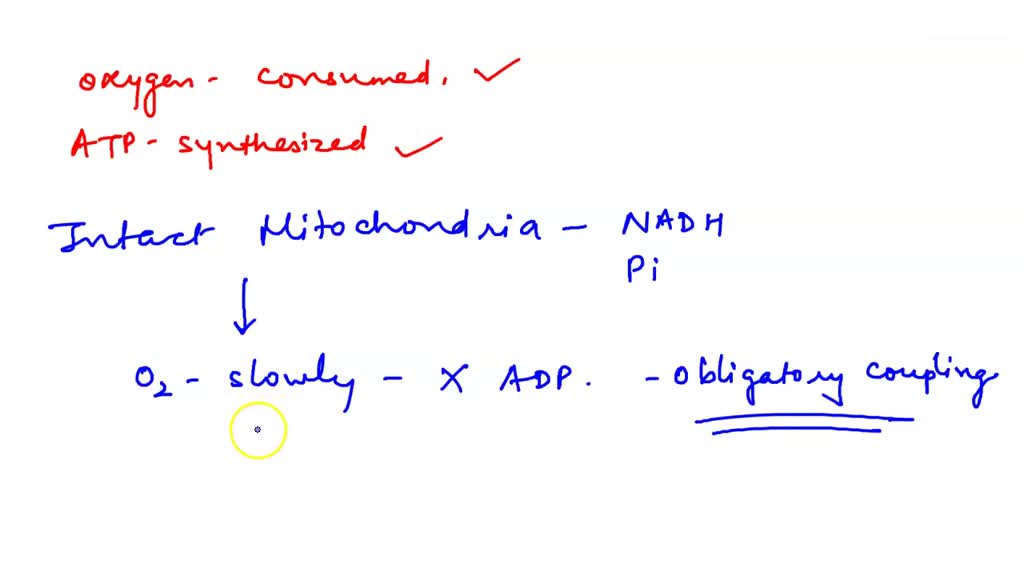 Oxygen - consumed. ✓
ATP - synthesized ✓
Intact Mitochondria - NADH
Pi
↓
O₂ - slowly - X ADP. - Obligatory coupling